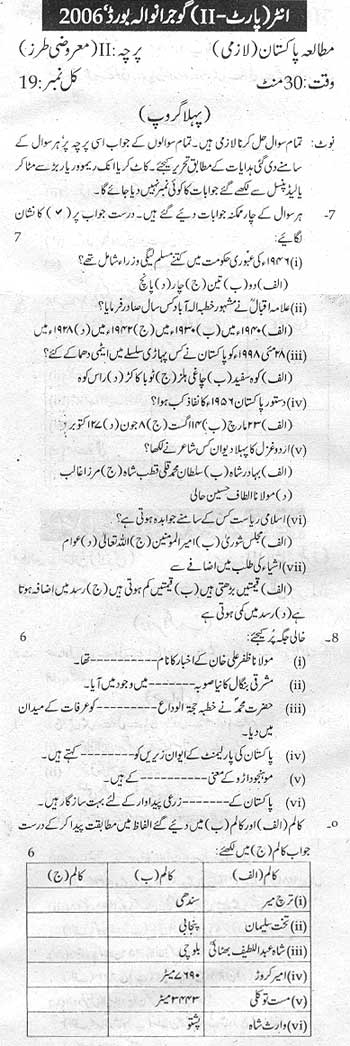 انٹر (پارٹ-II) گوجرانوالہ بورڈ، 2006ء
مطالعہ پاکستان (لازمی) پرچہ: II (معروضی طرز)
وقت: 30 منٹ کل نمبر: 19
(پہلا گروپ)
نوٹ: تمام سوال حل کرنا لازمی ہیں۔ تمام سوالوں کے جواب اسی پرچہ پر ہر سوال کے
سامنے دی گئی ہدایات کے مطابق تحریر کیجئے۔ کاٹ کر یا انک ریموور یا ربڑ سے مٹا کر
یا لیڈ پنسل سے لکھے گئے جوابات کا کوئی نمبر نہیں دیا جائے گا۔
7- ہر سوال کے چار ممکنہ جوابات دیئے گئے ہیں۔ درست جواب پر (✓) کا نشان
لگائیے: 7
(i) ۱۹۴۶ء کی عبوری حکومت میں کتنے مسلم لیگی وزراء شامل تھے؟
(الف) دو (ب) تین (ج) چار (د) پانچ
(ii) علامہ اقبالؒ نے مشہور خطبہ الہ آباد کس سال صادر فرمایا؟
(الف) ۱۹۴۰ء میں (ب) ۱۹۳۰ء میں (ج) ۱۹۴۲ء میں (د) ۱۹۲۸ء میں
(iii) ۲۸ مئی ۱۹۹۸ء کو پاکستان نے کس پہاڑی سلسلے میں ایٹمی دھماکے کئے؟
(الف) کوہ سفید (ب) چاغی ہلز (ج) توبا کاکڑ (د) راس کوہ
(iv) دستور پاکستان ۱۹۵۶ء کا نفاذ کب ہوا؟
(الف) ۲۳ مارچ (ب) ۱۴ اگست (ج) ۸ جون (د) ۲۷ اکتوبر
(v) اردو غزل کا پہلا دیوان کس شاعر نے لکھا؟
(الف) بہادر شاہ (ب) سلطان محمد قلی قطب شاہ (ج) مرزا غالب
(د) مولانا الطاف حسین حالی
(vi) اسلامی ریاست کس کے سامنے جوابدہ ہوتی ہے؟
(الف) مجلس شوریٰ (ب) امیر المومنین (ج) اللہ تعالیٰ (د) عوام
(vii) اشیاء کی طلب میں اضافے سے
(الف) قیمتیں بڑھتی ہیں (ب) قیمتیں کم ہوتی ہیں (ج) رسد میں اضافہ ہوتا
ہے (د) رسد میں کمی ہوتی ہے
8- خالی جگہ پُر کیجئے: 6
(i) مولانا ظفر علی خان کے اخبار کا نام -------- تھا۔
(ii) مشرقی بنگال کا نیا صوبہ -------- میں وجود میں آیا۔
(iii) حضرت محمدؐ نے خطبہ حجۃ الوداع -------- کو عرفات کے میدان
میں دیا۔
(iv) پاکستان کی پارلیمنٹ کے ایوان زیریں کو -------- کہتے ہیں۔
(v) موہنجوداڑو کے معنی -------- کے ہیں۔
(vi) پاکستان کے -------- زرعی پیداوار کے لئے بہت سازگار ہیں۔
o- کالم (الف) اور کالم (ب) میں دیئے گئے الفاظ میں مطابقت پیدا کر کے درست
جواب کالم (ج) میں لکھئے: 6
کالم (الف) کالم (ب) کالم (ج)
(i) ترچ میر سندھی
(ii) تخت سلیمان پنجابی
(iii) شاہ عبداللطیف بھٹائیؒ بلوچی
(iv) امیر کروڑ ۷۶۹۰ میٹر
(v) مست توکلی ۳۴۴۳ میٹر
(vi) وارث شاہ پشتو